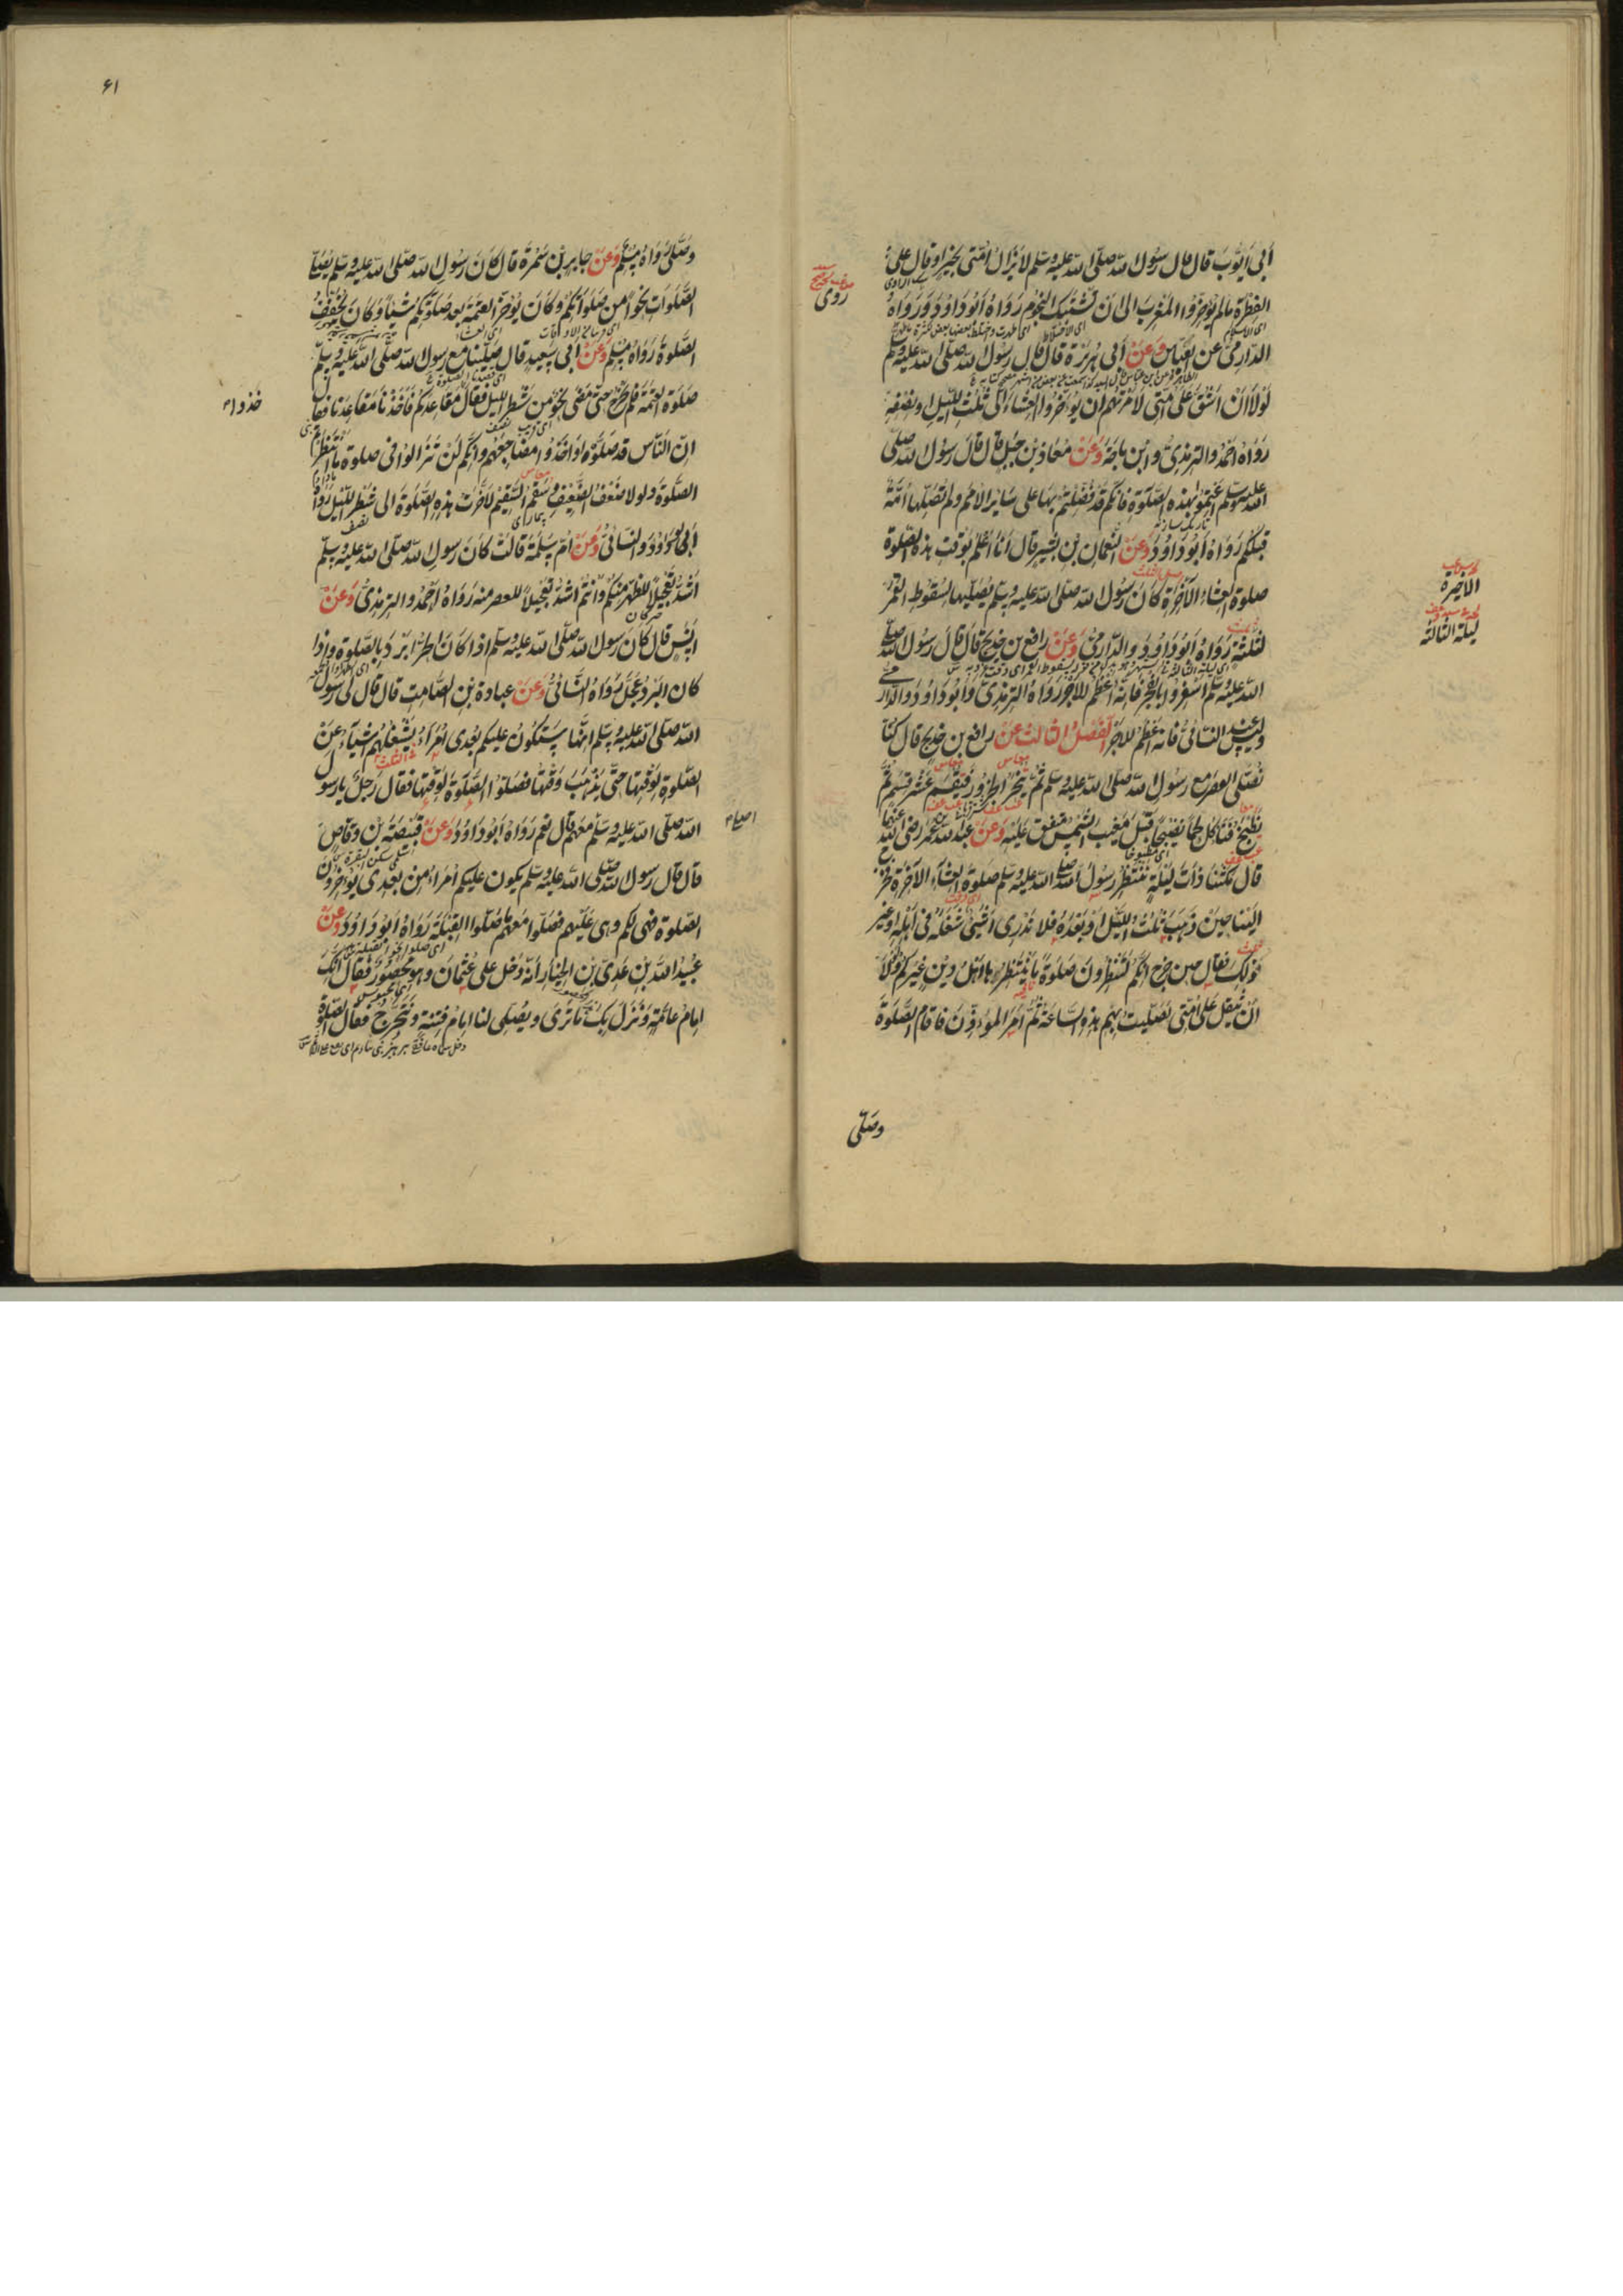 أبي أيوب قال قال رسول الله صلى الله عليه وسلم لا يزال أمتي بخير أو قال على
الفطرة ما لم يؤخروا المغرب إلى أن تشتبك النجوم رواه أبو داود ورواه
الدارمي عن العباس وعن أبي هريرة قال قال رسول الله صلى الله عليه وسلم
لولا أن أشق على أمتي لأمرتهم أن يؤخروا العشاء إلى ثلث الليل أو نصفه
رواه أحمد والترمذي وابن ماجة وعن معاذ بن جبل قال قال رسول الله صلى
الله عليه وسلم أعتموا بهذه الصلوة فإنكم قد فضلتم بها على سائر الأمم ولم تصلها أمة
قبلكم رواه أبو داود وعن النعمان بن بشير قال أنا أعلم بوقت هذه الصلوة
صلوة العشاء الآخرة كان رسول الله صلى الله عليه وسلم يصليها لسقوط القمر
لثلثة رواه أبو داود والدارمي وعن رافع بن خديج قال قال رسول الله صلى
الله عليه وسلم أسفروا بالفجر فإنه أعظم للأجر رواه الترمذي وأبو داود والدارمي
وليس عند النسائي فإنه أعظم للأجر الفصل الثالث عن رافع بن خديج قال كنا
نصلي العصر مع رسول الله صلى الله عليه وسلم ثم ينحر الجزور فيقسم عشر قسم ثم
يطبخ فنأكل لحما نضيجا قبل مغيب الشمس متفق عليه وعن عبد الله بن عمر رضي الله عنهما
قال مكثنا ذات ليلة ننتظر رسول الله صلى الله عليه وسلم صلوة العشاء الآخرة فخرج
إلينا حين ذهب ثلث الليل أو بعده فلا ندري أشيء شغله في أهله أو غير
ذلك فقال حين خرج إنكم لتنتظرون صلوة ما ينتظرها أهل دين غيركم ولولا
أن يثقل على أمتي لصليت بهم هذه الساعة ثم أمر المؤذن فأقام الصلوة
وصلى
روى
الأخيرة
ليلة الثالثة
۶۱
وصلى رواه مسلم وعن جابر بن سمرة قال كان رسول الله صلى الله عليه وسلم يصلي
الصلوات نحوا من صلوتكم وكان يؤخر العتمة بعد صلوتكم شيئا وكان يخفف
الصلوة رواه مسلم وعن أبي سعيد قال صلينا مع رسول الله صلى الله عليه وسلم
صلوة العتمة فلم يخرج حتى مضى نحو من شطر الليل فقال مقاعدكم فأخذنا مقاعدنا فقال
إن الناس قد صلوا وأخذوا مضاجعهم وإنكم لن تزالوا في صلوة ما انتظرتم
الصلوة ولولا ضعف الضعيف وسقم السقيم لأخرت هذه الصلوة إلى شطر الليل رواه
أبو داود والنسائي وعن أم سلمة قالت كان رسول الله صلى الله عليه وسلم
أشد تعجيلا للظهر منكم وأنتم أشد تعجيلا للعصر منه رواه أحمد والترمذي وعن
أنس قال كان رسول الله صلى الله عليه وسلم إذا كان الحر أبرد بالصلوة وإذا
كان البرد عجل رواه النسائي وعن عبادة بن الصامت قال قال لي رسول
الله صلى الله عليه وسلم إنها ستكون عليكم بعدي أمراء يشغلهم أشياء عن
الصلوة لوقتها حتى يذهب وقتها فصلوا الصلوة لوقتها فقال رجل يا رسول
الله صلى الله عليه وسلم معهم قال نعم رواه أبو داود وعن قبيصة بن وقاص
قال قال رسول الله صلى الله عليه وسلم يكون عليكم أمراء من بعدي يؤخرون
الصلوة فهي لكم وهي عليهم فصلوا معهم ما صلوا القبلة رواه أبو داود وعن
عبيد الله بن عدي بن الخيار أنه دخل على عثمان وهو محصور فقال إنك
إمام عامة ونزل بك ما ترى ويصلي لنا إمام فتنة ونتحرج فقال الصلوة
خذوا
أصلي